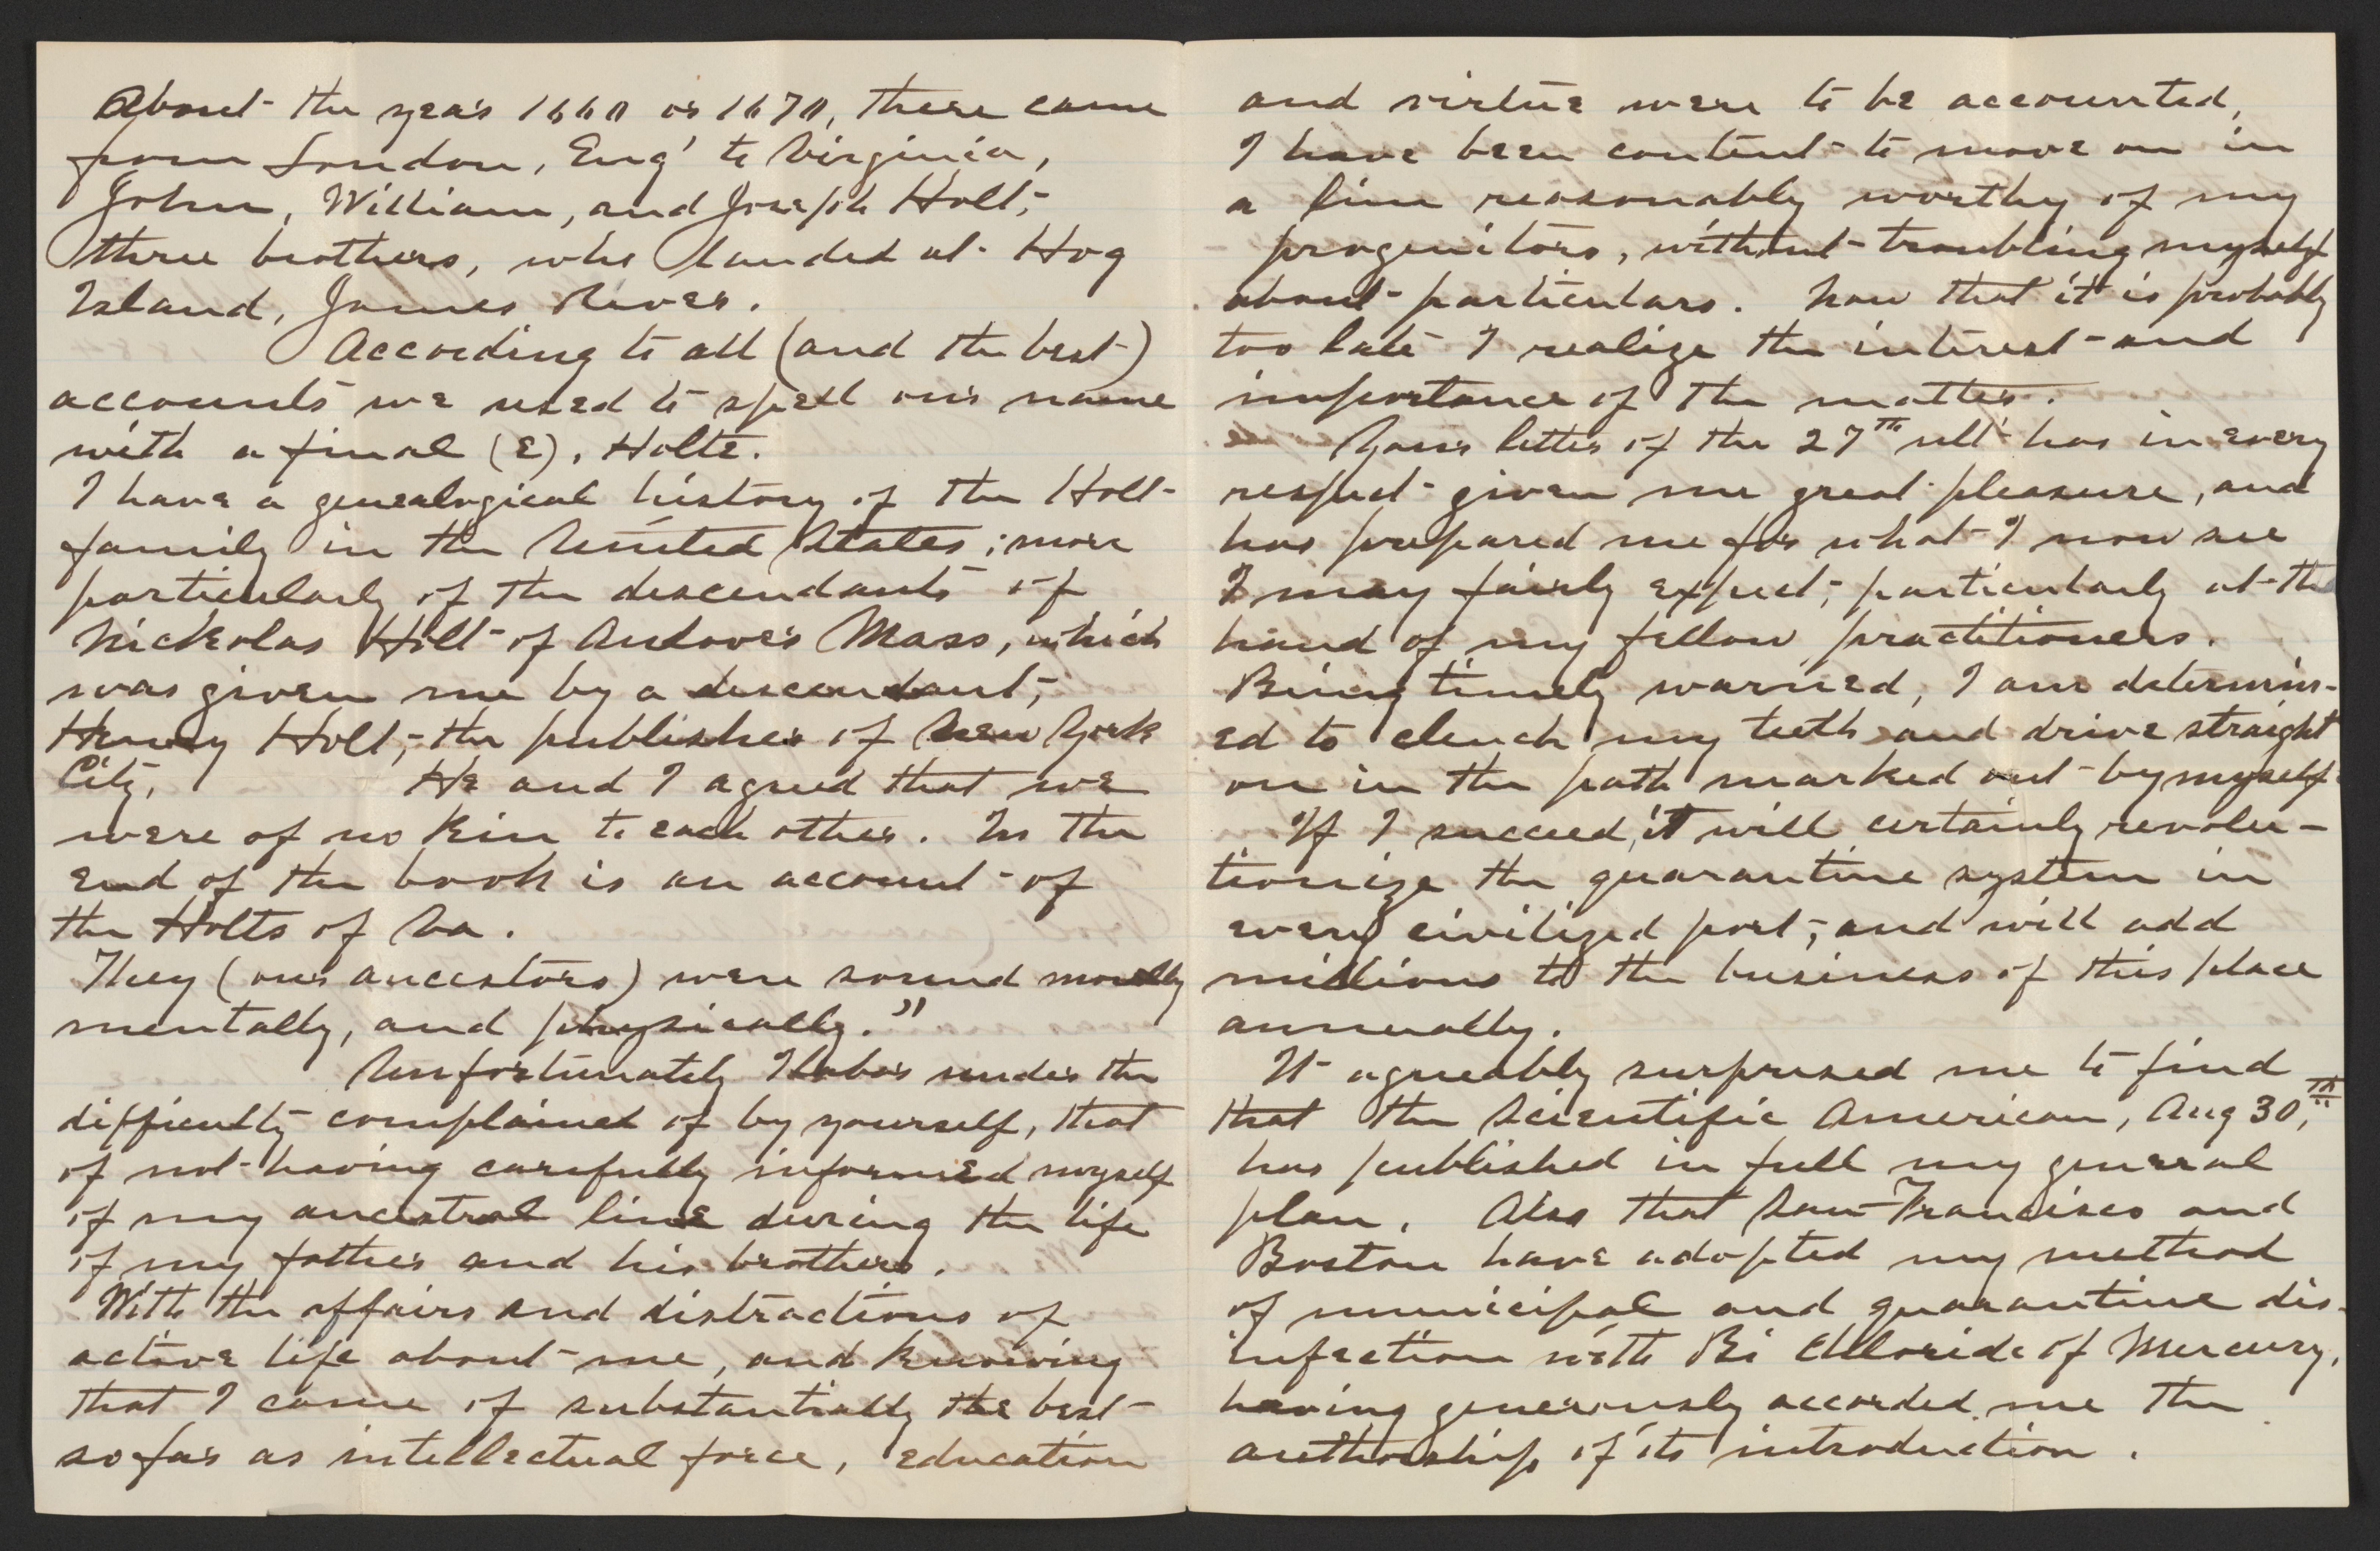 About the year 1660 or 1670, there came
from London, Eng' to Virginia,
John, William, and Joseph Holt,
three brothers, who landed at Hog
Island, James River.
According to all (and the best)
accounts we used to spell our name
with a final (E), Holte.
I have a genealogical history of the Holt
family in the United States; more
particularly of the descendants of
Nickolas Holt of Andover Mass, which
was given me by a descendant,
Henry Holt, the publisher of New York
City, He and I agreed that we
were of no kin to each other. In the
end of the book is an account of
the Holts of Va.
They (our ancestors) were sound morally
mentally, and physically."
Unfortunately I labor under the
difficulty complained of by yourself, that
of not having carefully informed myself
of my ancestral line during the life
of my father and his brothers.
With the affairs and distractions of
active life about me, and knowing
that I come of substantially the best
so far as intellectual force, education
and virtue were to be accounted,
I have been content to move on in
a line reasonably worthy of my
progenitors, without troubling myself
about particulars. Now that it is probably
too late I realize the interest and
importance of the matter.
Your letter of the 27th ult has in every
respect given me great pleasure, and
has prepared me for what I now see
I may fairly expect, particularly at the
hand of my fellow practitioners.
Being timely warned, I am determin-
ed to clench my teeth and drive straight
on in the path marked out by myself.
If I succeed, it will certainly revolu-
tionize the quarantine system in
every civilized port, and will add
millions to the business of this place
annually.
It agreeably surprised me to find
that the Scientific American, Aug 30,th
has published in full my general
plan. Also that San Francisco and
Boston have adopted my method
of municipal and quarantine dis-
infection with Bi Chloride of Mercury,
having generously accorded me the
authorship of its introduction.